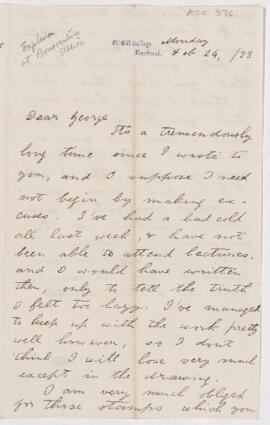 ACC 576
Explosion
at Bonaventure
Station
McGill College,
Montreal.
Monday
Feb 24, /73
Dear George
It's a tremendously
long time since I wrote to
you, and I suppose I need
not begin by making ex-
cuses. I've had a bad cold
all last week, & have not
been able to attend lectures,
and I would have written
then, only to tell the truth
I felt too lazy. I've managed
to keep up with the work pretty
well however, so I don't
think I will lose very much
except in the drawing.
I am very much obliged
for those stamps which you